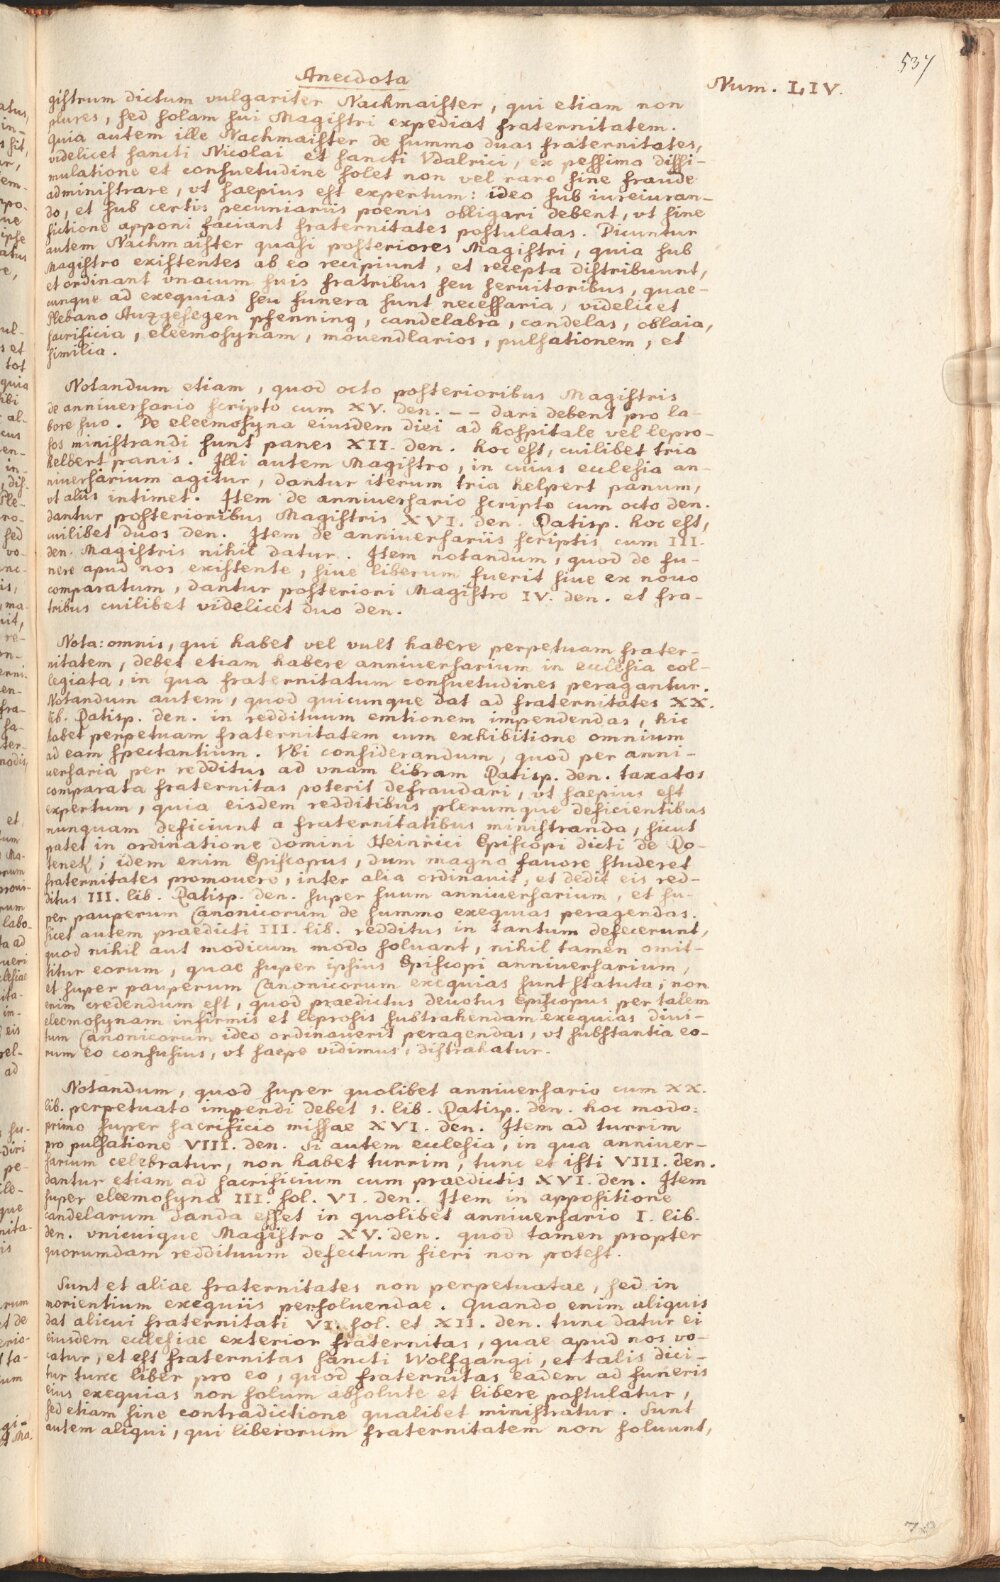 537
Anecdota
Num. LIV.
gistrum dictum vulgariter Nachmaister, qui etiam non
plures, sed solam sui Magistri expediat fraternitatem.
Quia autem ille Nachmaister de summo duas fraternitates,
videlicet sancti Nicolai et sancti Vdalrici, ex pessima dissi-
mulatione et consuetudine solet non vel raro sine fraude
administrare, vt saepius est expertum: ideo sub iureiuran-
do, et sub certis pecuniariis poenis obligari debent, vt sine
fictione apponi faciant fraternitates postulatas. Dicuntur
autem Nachmaister quasi posteriores Magistri, quia sub
Magistro existentes ab eo recipiunt, et recepta distribuunt,
et ordinant vnacum suis fratribus seu seruitoribus, quae-
cunque ad exequias seu funera sunt necessaria, videlicet
Plebano Auzgesegen pfenning, candelabra, candelas, oblaia,
sacrificia, eleemosynam, mouendlarios, pulsationem, et
similia.
Notandum etiam, quod octo posterioribus Magistris
de anniuersario scripto cum XV. den. -- dari debent pro la-
bore suo. De eleemosyna eiusdem diei ad hospitale vel lepro-
sos ministrandi sunt panes XII. den. hoc est, cuilibet tria
helbert panis. Illi autem Magistro, in cuius ecclesia an-
niuersarium agitur, dantur iterum tria helpert panum,
vt aliis intimet. Item de anniuersario scripto cum octo den.
dantur posterioribus Magistris XVI. den. Ratisp. hoc est,
cuilibet duos den. Item de anniuersariis scriptis cum III.
den. Magistris nihil datur. Item notandum, quod de fu-
nere apud nos existente, siue liberum fuerit siue ex nouo
comparatum, dantur posteriori Magistro IV. den. et fra-
tribus cuilibet videlicet duo den.
Nota: omnis, qui habet vel vult habere perpetuam frater-
nitatem, debet etiam habere anniuersarium in ecclesia col-
legiata, in qua fraternitatum consuetudines peragantur.
Notandum autem, quod quicunque dat ad fraternitates XX.
lib. Ratisp. den. in reddituum emtionem impendendas, hic
habet perpetuam fraternitatem cum exhibitione omnium
ad eam spectantium. Vbi considerandum, quod per anni-
uersaria per redditus ad vnam libram Ratisp. den. taxatos
comparata fraternitas poterit defraudari, vt saepius est
expertum, quia eisdem redditibus plerumque deficientibus
nunquam deficiunt a fraternitatibus ministranda, sicut
patet in ordinatione domini Heinrici Episcopi dicti de Ro-
tenek; idem enim Episcopus, dum magno fauore studeret
fraternitates promouere, inter alia ordinauit, et dedit eis red-
ditus III. lib. Ratisp. den. super suum anniuersarium, et su-
per pauperum Canonicorum de summo exequias peragendas.
licet autem praedicti III. lib. redditus in tantum defecerunt,
quod nihil aut modicum modo soluant, nihil tamen omit-
titur eorum, quae super ipsius Episcopi anniuersarium,
et super pauperum Canonicorum exequias sunt statuta; non
enim credendum est, quod praedictus deuotus Episcopus per talem
eleemosynam infirmis et leprosis subtrahendam exequias diui-
tum Canonicorum ideo ordinauerit peragendas, vt substantia eo-
rum eo confusius, vt saepe vidimus, distrahatur.
Notandum, quod super quolibet anniuersario cum XX.
lib. perpetuato impendi debet 1. lib. Ratisp. den. hoc modo:
primo super sacrificio missae XVI. den. Item ad turrim
pro pulsatione VIII. den. Si autem ecclesia, in qua anniuer-
sarium celebratur, non habet turrim, tunc et isti VIII. den.
dantur etiam ad sacrificium cum praedictis XVI. den. Item
super eleemosyna III. sol. VI. den. Item in appositione
candelarum danda esset in quolibet anniuersario I. lib.
den. vnicuique Magistro XV. den. quod tamen propter
quorumdam reddituum defectum fieri non potest.
Sunt et aliae fraternitates non perpetuatae, sed in
morientium exequiis persoluendae. Quando enim aliquis
dat alicui fraternitati VI. sol. et XII. den. tunc datur ei
eiusdem ecclesiae exterior fraternitas, quae apud nos vo-
catur, et est fraternitas sancti Wolfgangi, et talis dici-
tur tunc liber pro eo, quod fraternitas eadem ad funeris
eius exequias non solum absolute et libere postulatur,
sed etiam sine contradictione qualibet ministratur. Sunt
autem aliqui, qui liberorum fraternitatem non soluunt,